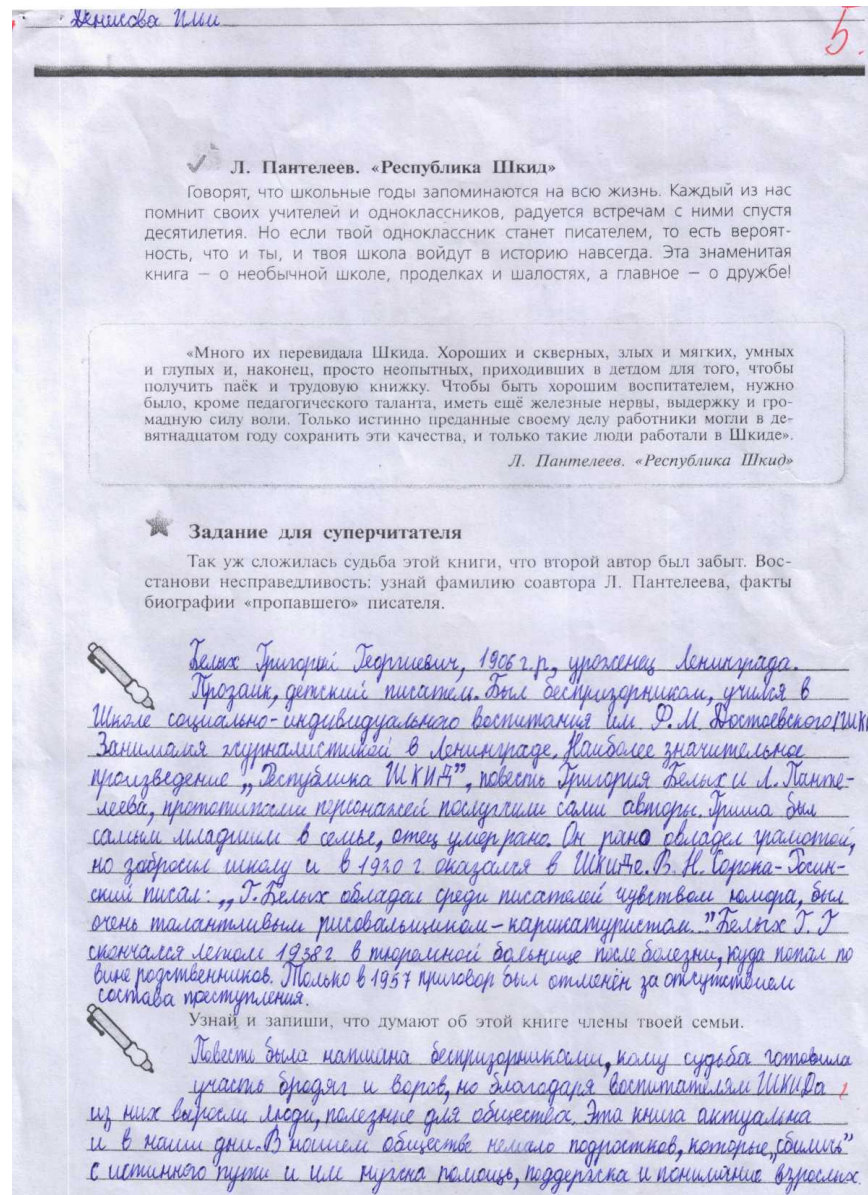 Денисова Ильи
5.
Л. Пантелеев. «Республика Шкид»
Говорят, что школьные годы запоминаются на всю жизнь. Каждый из нас
помнит своих учителей и одноклассников, радуется встречам с ними спустя
десятилетия. Но если твой одноклассник станет писателем, то есть вероят-
ность, что и ты, и твоя школа войдут в историю навсегда. Эта знаменитая
книга — о необычной школе, проделках и шалостях, а главное — о дружбе!
«Много их перевидала Шкида. Хороших и скверных, злых и мягких, умных
и глупых и, наконец, просто неопытных, приходивших в детдом для того, чтобы
получить паёк и трудовую книжку. Чтобы быть хорошим воспитателем, нужно
было, кроме педагогического таланта, иметь ещё железные нервы, выдержку и гро-
мадную силу воли. Только истинно преданные своему делу работники могли в де-
вятнадцатом году сохранить эти качества, и только такие люди работали в Шкиде».
Л. Пантелеев. «Республика Шкид»
Задание для суперчитателя
Так уж сложилась судьба этой книги, что второй автор был забыт. Вос-
станови несправедливость: узнай фамилию соавтора Л. Пантелеева, факты
биографии «пропавшего» писателя.
Белых Григорий Георгиевич, 1906 г.р., уроженец Ленинграда.
Прозаик, детский писатель. Был беспризорником, учился в
Школе социально-индивидуального воспитания им. Ф.М. Достоевского (ШК
Занимался журналистикой в Ленинграде. Наиболее значительное
произведение „Республика ШКИД", повесть Григория Белых и Л. Панте-
леева, прототипами персонажей послужили сами авторы. Гриша был
самым младшим в семье, отец умер рано. Он рано овладел грамотой,
но забросил школу и в 1920 г оказался в ШКиДе. В. Н. Сорока-Росин-
ский писал: „Г. Белых обладал среди писателей чувством юмора, был
очень талантливым рисовальщиком-карикатуристом." Белых Г. Г
скончался летом 1938 г. в тюремной больнице после болезни, куда попал по
вине родственников. Только в 1957 приговор был отменён за отсутствием
состава преступления.
Узнай и запиши, что думают об этой книге члены твоей семьи.
Повесть была написана беспризорниками, кому судьба готовила
участь бродяг и воров, но благодаря воспитателям ШКИДа
из них выросли люди, полезные для общества. Эта книга актуальна
и в наши дни. В нашем обществе немало подростков, которые „сбились"
с истинного пути и им нужна помощь, поддержка и понимание взрослых.